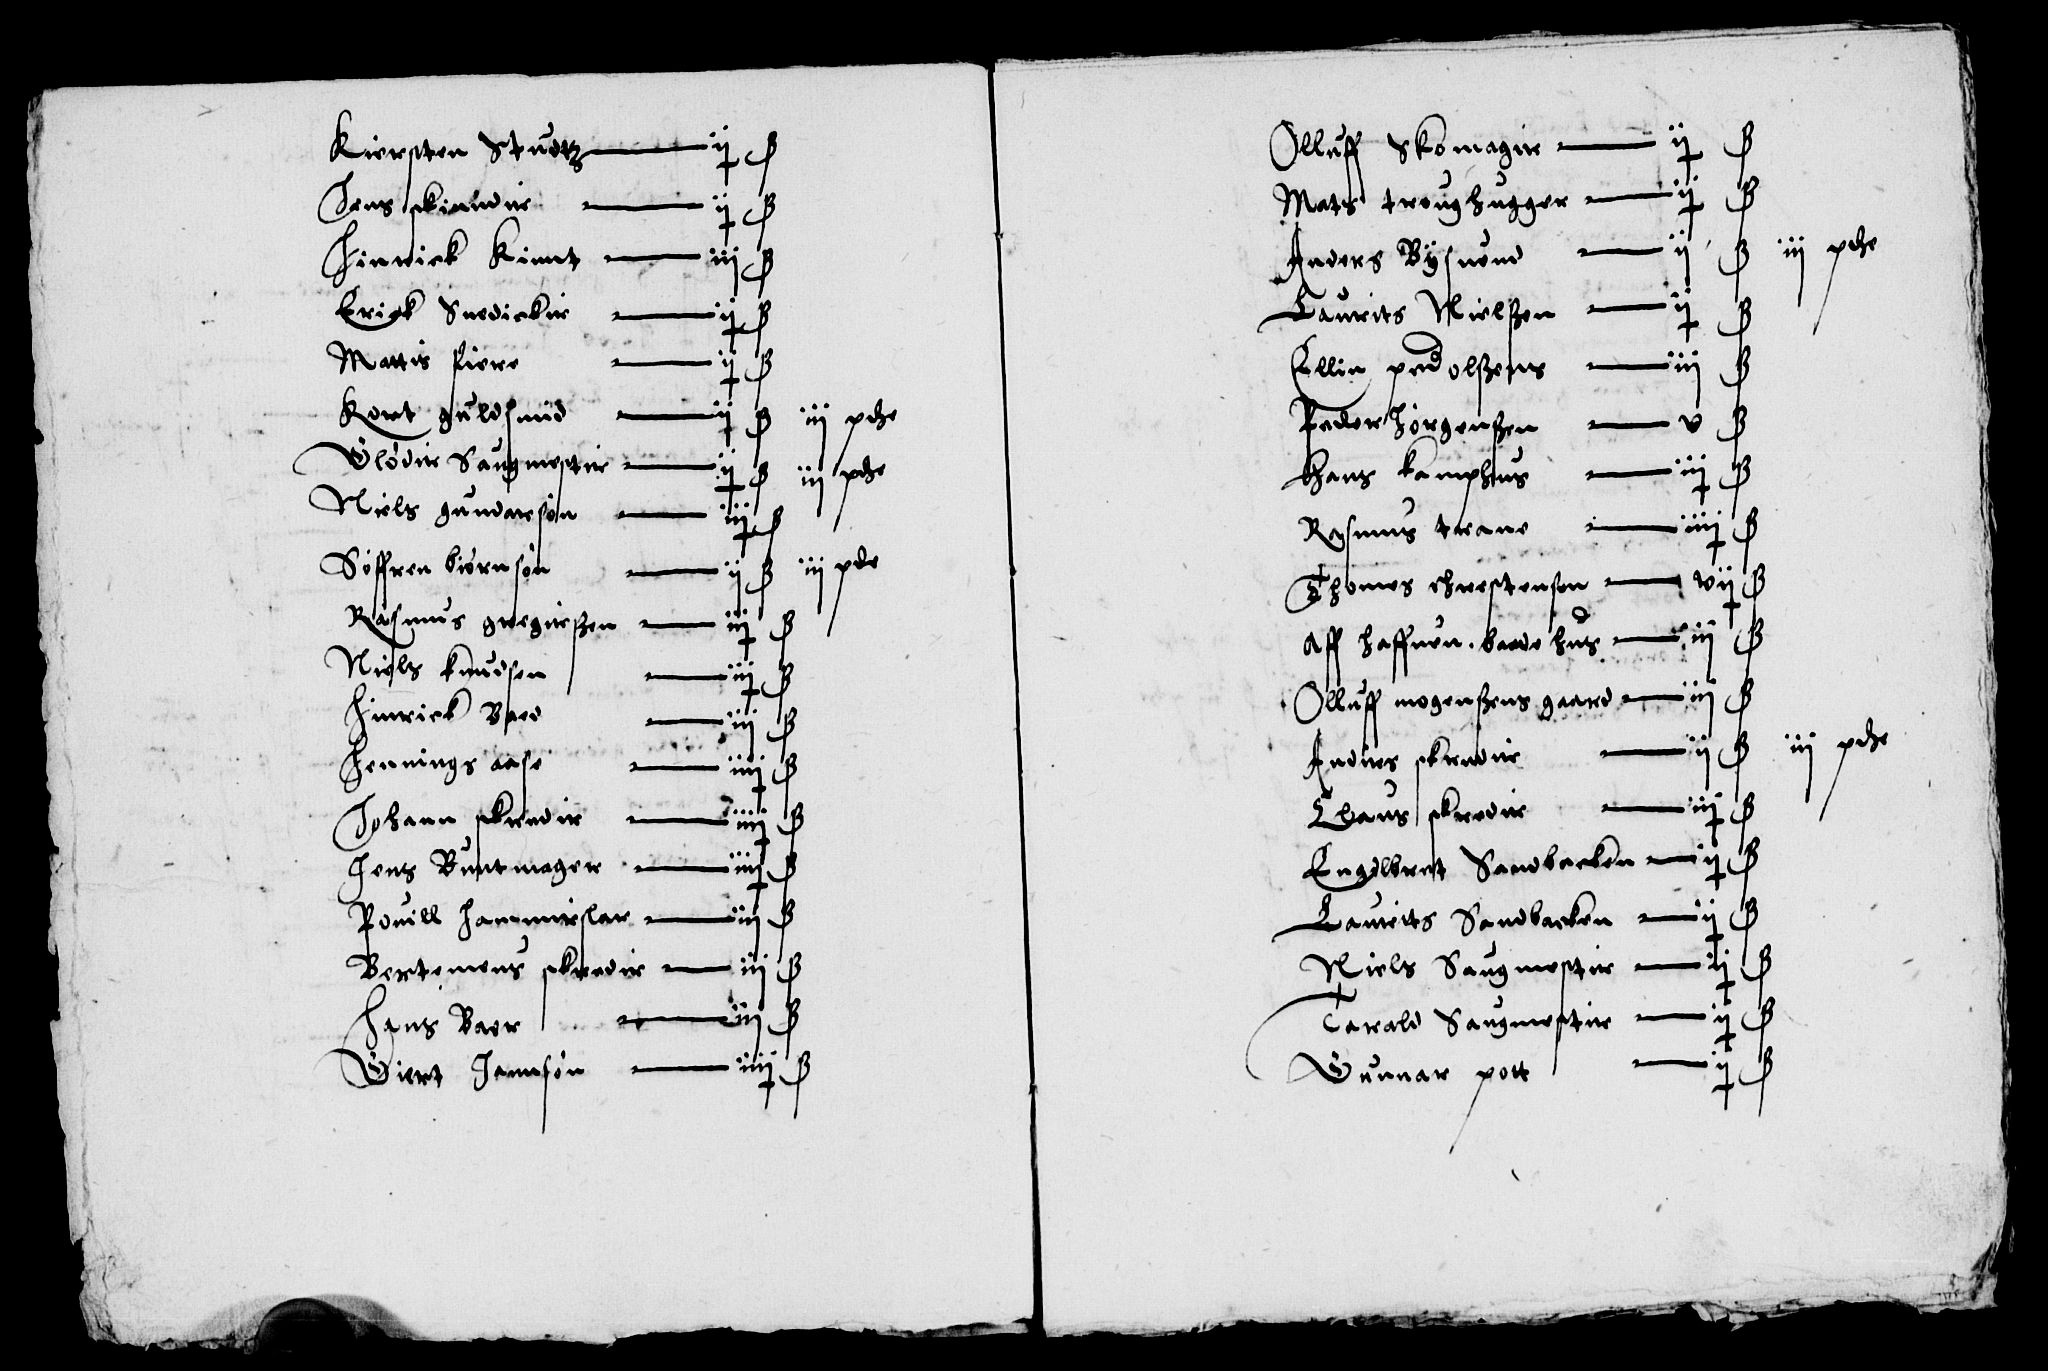 Kiersten Studtz — ij ß
Jens skinder — ij ß
Hinrick Kinnt — iij ß
Erick Snedicker — ij ß
Mattis fiere — ij ß
Kort guldsmid — ij ß iij pdhe
Olødir Saugmester — ij ß iij pdhe
Niels gundersøn — iij ß
Søffren biørnsøn — ij ß iij pde
Rasmus gregerßen — iij ß
Niels knudsen — iij ß
Hinrick Baed — iij ß
Hennings aase — iiij ß
Johann skreder — iiij ß
Jens Buntmager — iiij ß
Pouill Hammerslar — iiij ß
Bertemeus skreder — iij ß
Hans Baer — iij ß
Giert Jannsøn — iiij ß
Olluff Skomager — ij ß
Mats troughugger — ij ß
Anders Bysuend — ij ß iij pdhe
Laurits Nielßen — ij ß
Ellin ped olßens — iij ß
Peder Jörgenßen — v ß
Hans kamphus — iij ß
Rasmus trane — iiij ß
Thomes chrestensen — vij ß
Aff haffnen. baede hus — iij ß
Olluff mogenßens gaard — iij ß
Andres skreder — ij ß iij pdhe
Claus skreder — iij ß
Engelbret Sandbacken — ij ß
Laurits Sandbacken — ij ß
Niels Saugmester — ij ß
Tarald Saugmester — ij ß
Gunnar pott — ij ß